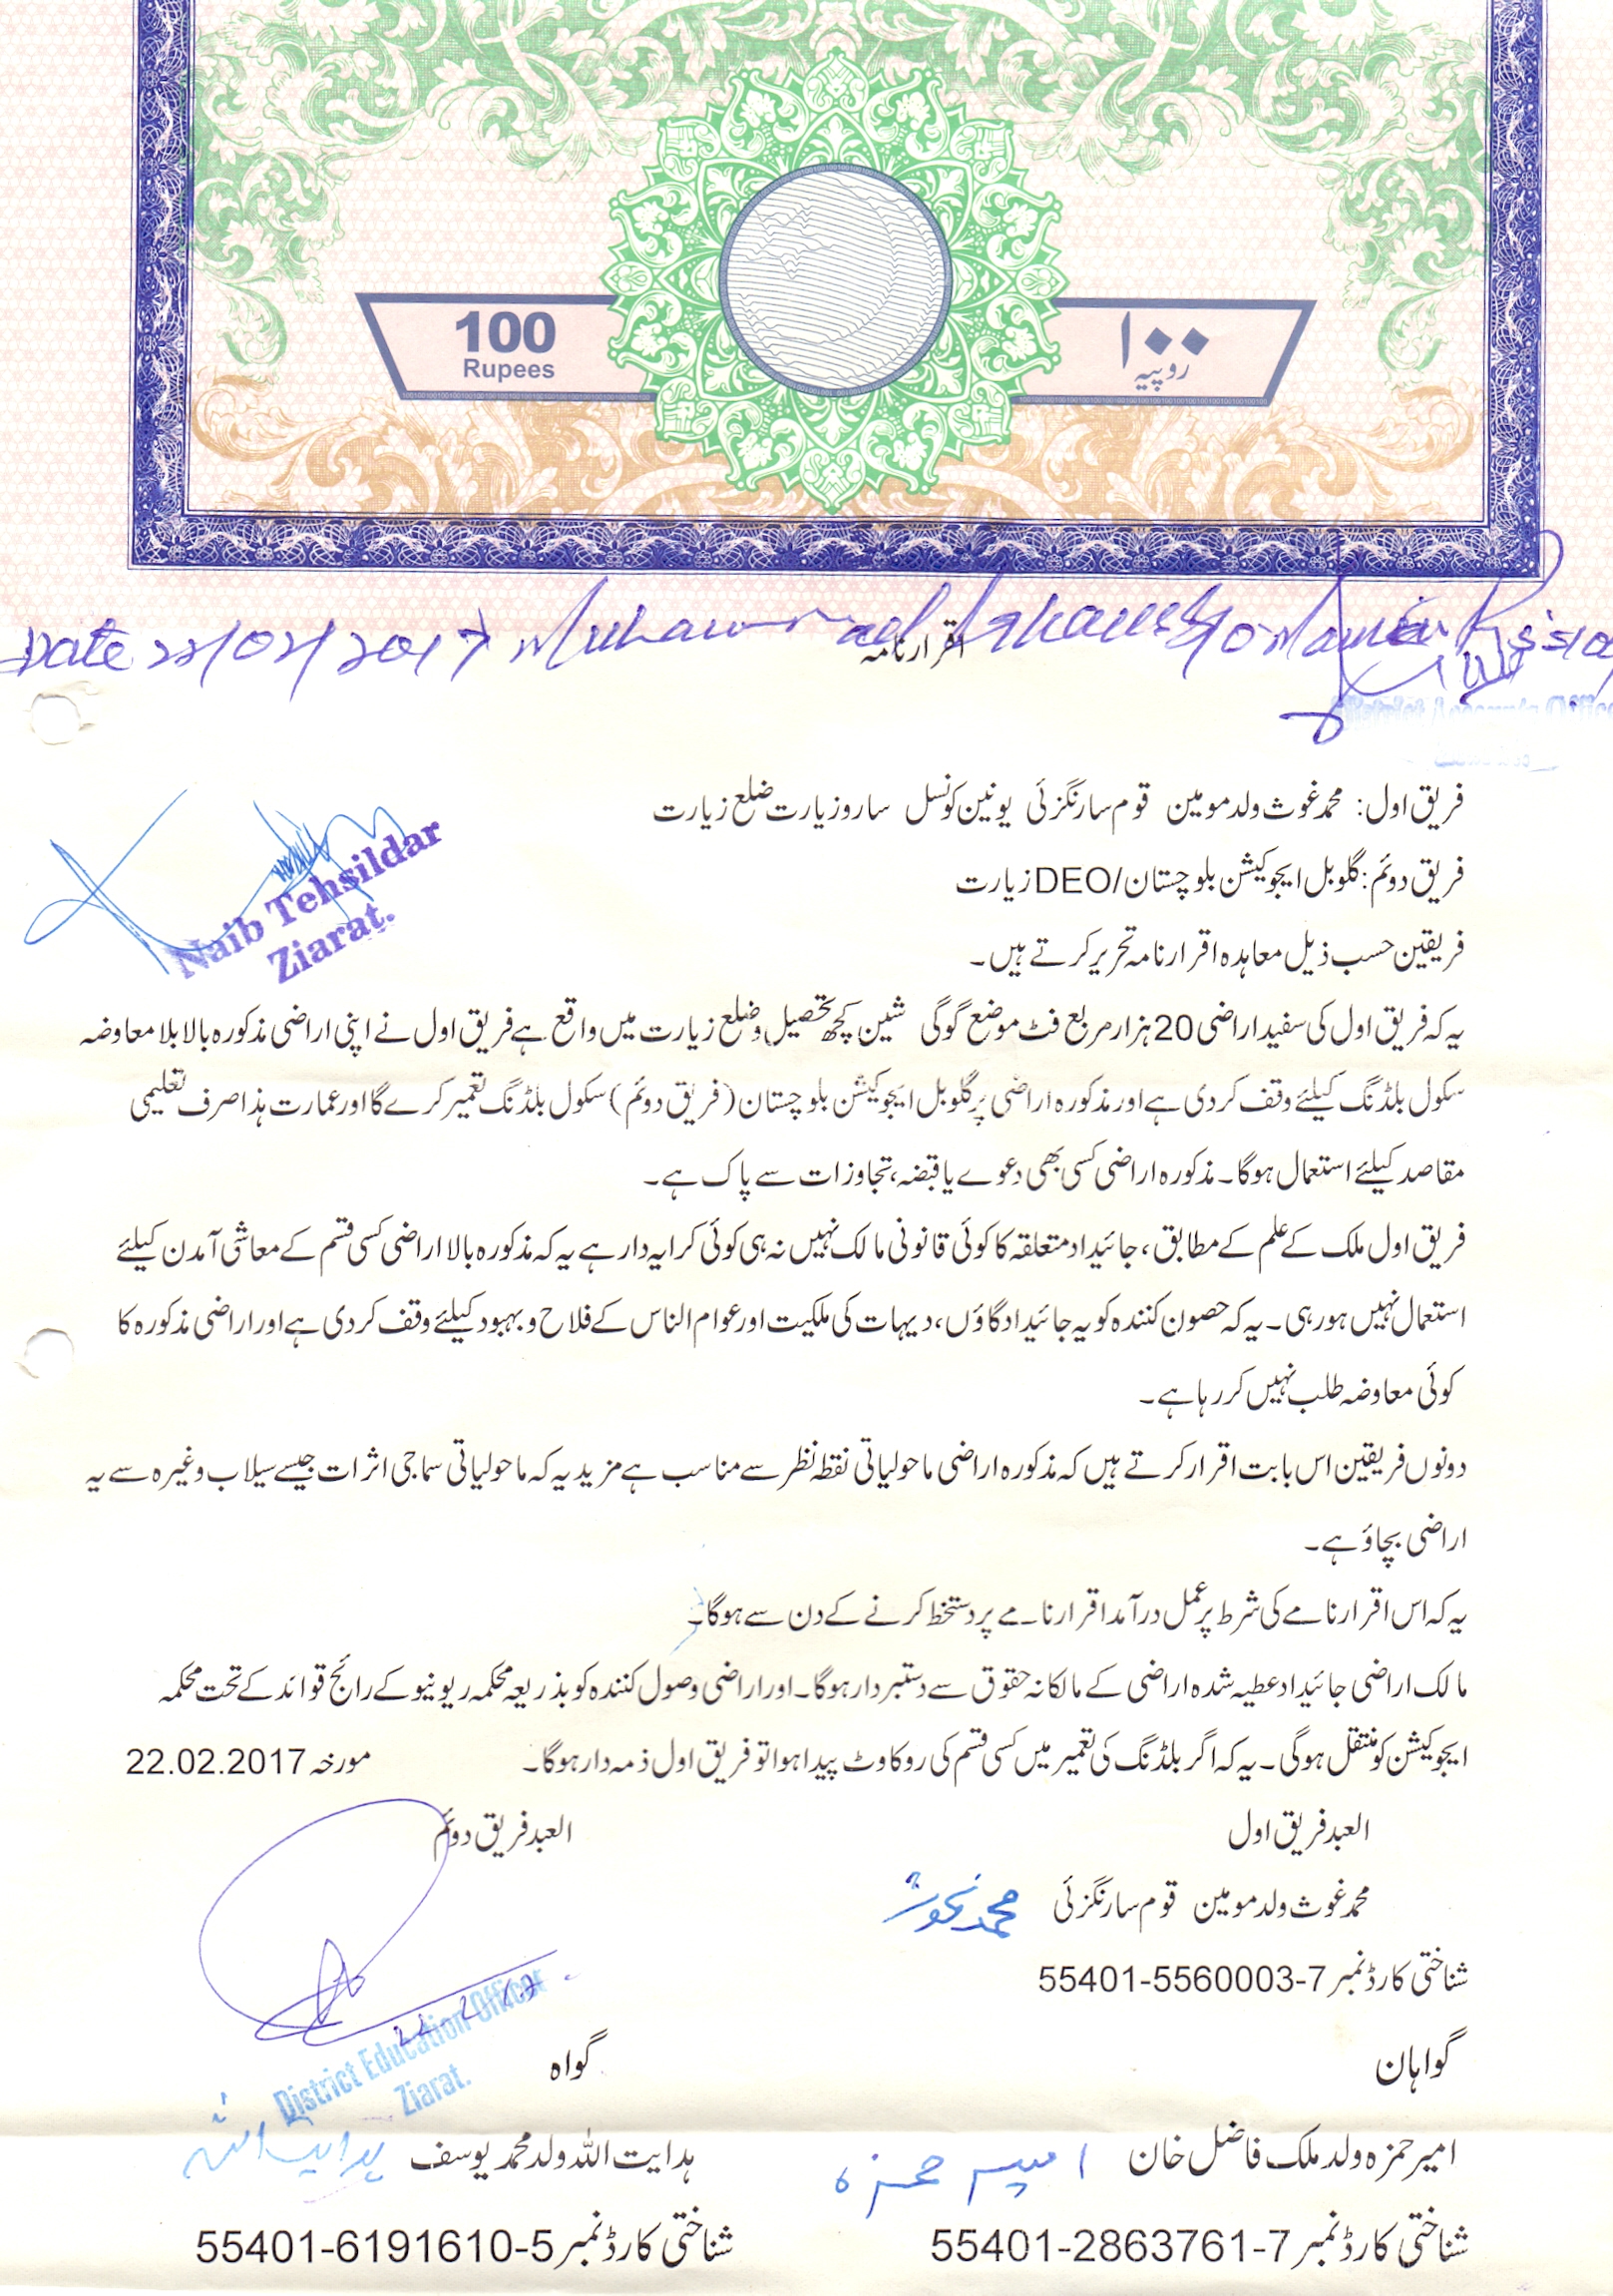 100
Rupees
۱۰۰
روپیہ
Date 22/02/2017 Muhammad
اقرارنامہ
فریق اول: محمد غوث ولد مومین قوم سارنگزئی یونین کونسل ساروزیارت ضلع زیارت
Naib Tehsildar
Ziarat.
فریق دوئم: گلوبل ایجوکیشن بلوچستان/DEO زیارت
فریقین حسب ذیل معاہدہ اقرارنامہ تحریر کرتے ہیں۔
یہ کہ فریق اول کی سفید اراضی 20 ہزار مربع فٹ موضع گوگی شین کچھ تحصیل و ضلع زیارت میں واقع ہے فریق اول نے اپنی اراضی مذکورہ بالا بلا معاوضہ
سکول بلڈنگ کیلئے وقف کردی ہے اور مذکورہ اراضی پر گلوبل ایجوکیشن بلوچستان (فریق دوئم) سکول بلڈنگ تعمیر کرے گا اور عمارت ہذا صرف تعلیمی
مقاصد کیلئے استعمال ہوگا۔ مذکورہ اراضی کسی بھی دعوے یا قبضہ، تجاوزات سے پاک ہے۔
فریق اول ملک کے علم کے مطابق، جائیداد متعلقہ کا کوئی قانونی مالک نہیں نہ ہی کوئی کرایہ دار ہے یہ کہ مذکورہ بالا اراضی کسی قسم کے معاشی آمدن کیلئے
استعمال نہیں ہورہی۔ یہ کہ حصون کنندہ کو یہ جائیداد گاؤں، دیہات کی ملکیت اور عوام الناس کے فلاح و بہبود کیلئے وقف کردی ہے اور اراضی مذکورہ کا
کوئی معاوضہ طلب نہیں کررہا ہے۔
دونوں فریقین اس بابت اقرار کرتے ہیں کہ مذکورہ اراضی ماحولیاتی نقطہ نظر سے مناسب ہے مزید یہ کہ ماحولیاتی سماجی اثرات جیسے سیلاب وغیرہ سے یہ
اراضی بچاؤ ہے۔
یہ کہ اس اقرارنامے کی شرط پر عمل درآمد اقرارنامے پر دستخط کرنے کے دن سے ہوگا۔
مالک اراضی جائیداد عطیہ شدہ اراضی کے مالکانہ حقوق سے دستبردار ہوگا۔ اور اراضی وصول کنندہ کو بذریعہ محکمہ ریونیو کے رائج قوائد کے تحت محکمہ
ایجوکیشن کو منتقل ہوگی۔ یہ کہ اگر بلڈنگ کی تعمیر میں کسی قسم کی روکاوٹ پیدا ہوا تو فریق اول ذمہ دار ہوگا۔ مورخہ 22.02.2017
العبد فریق اول
العبد فریق دوئم
محمد غوث ولد مومین قوم سارنگزئی محمد غوث
شناختی کارڈ نمبر 55401-5560003-7
22.2.17
District Education Officer
Ziarat.
گواہان
گواہ
امیر حمزہ ولد ملک فاضل خان امیر حمزہ
ہدایت اللہ ولد محمد یوسف ہدایت اللہ
شناختی کارڈ نمبر 55401-2863761-7
شناختی کارڈ نمبر 55401-6191610-5